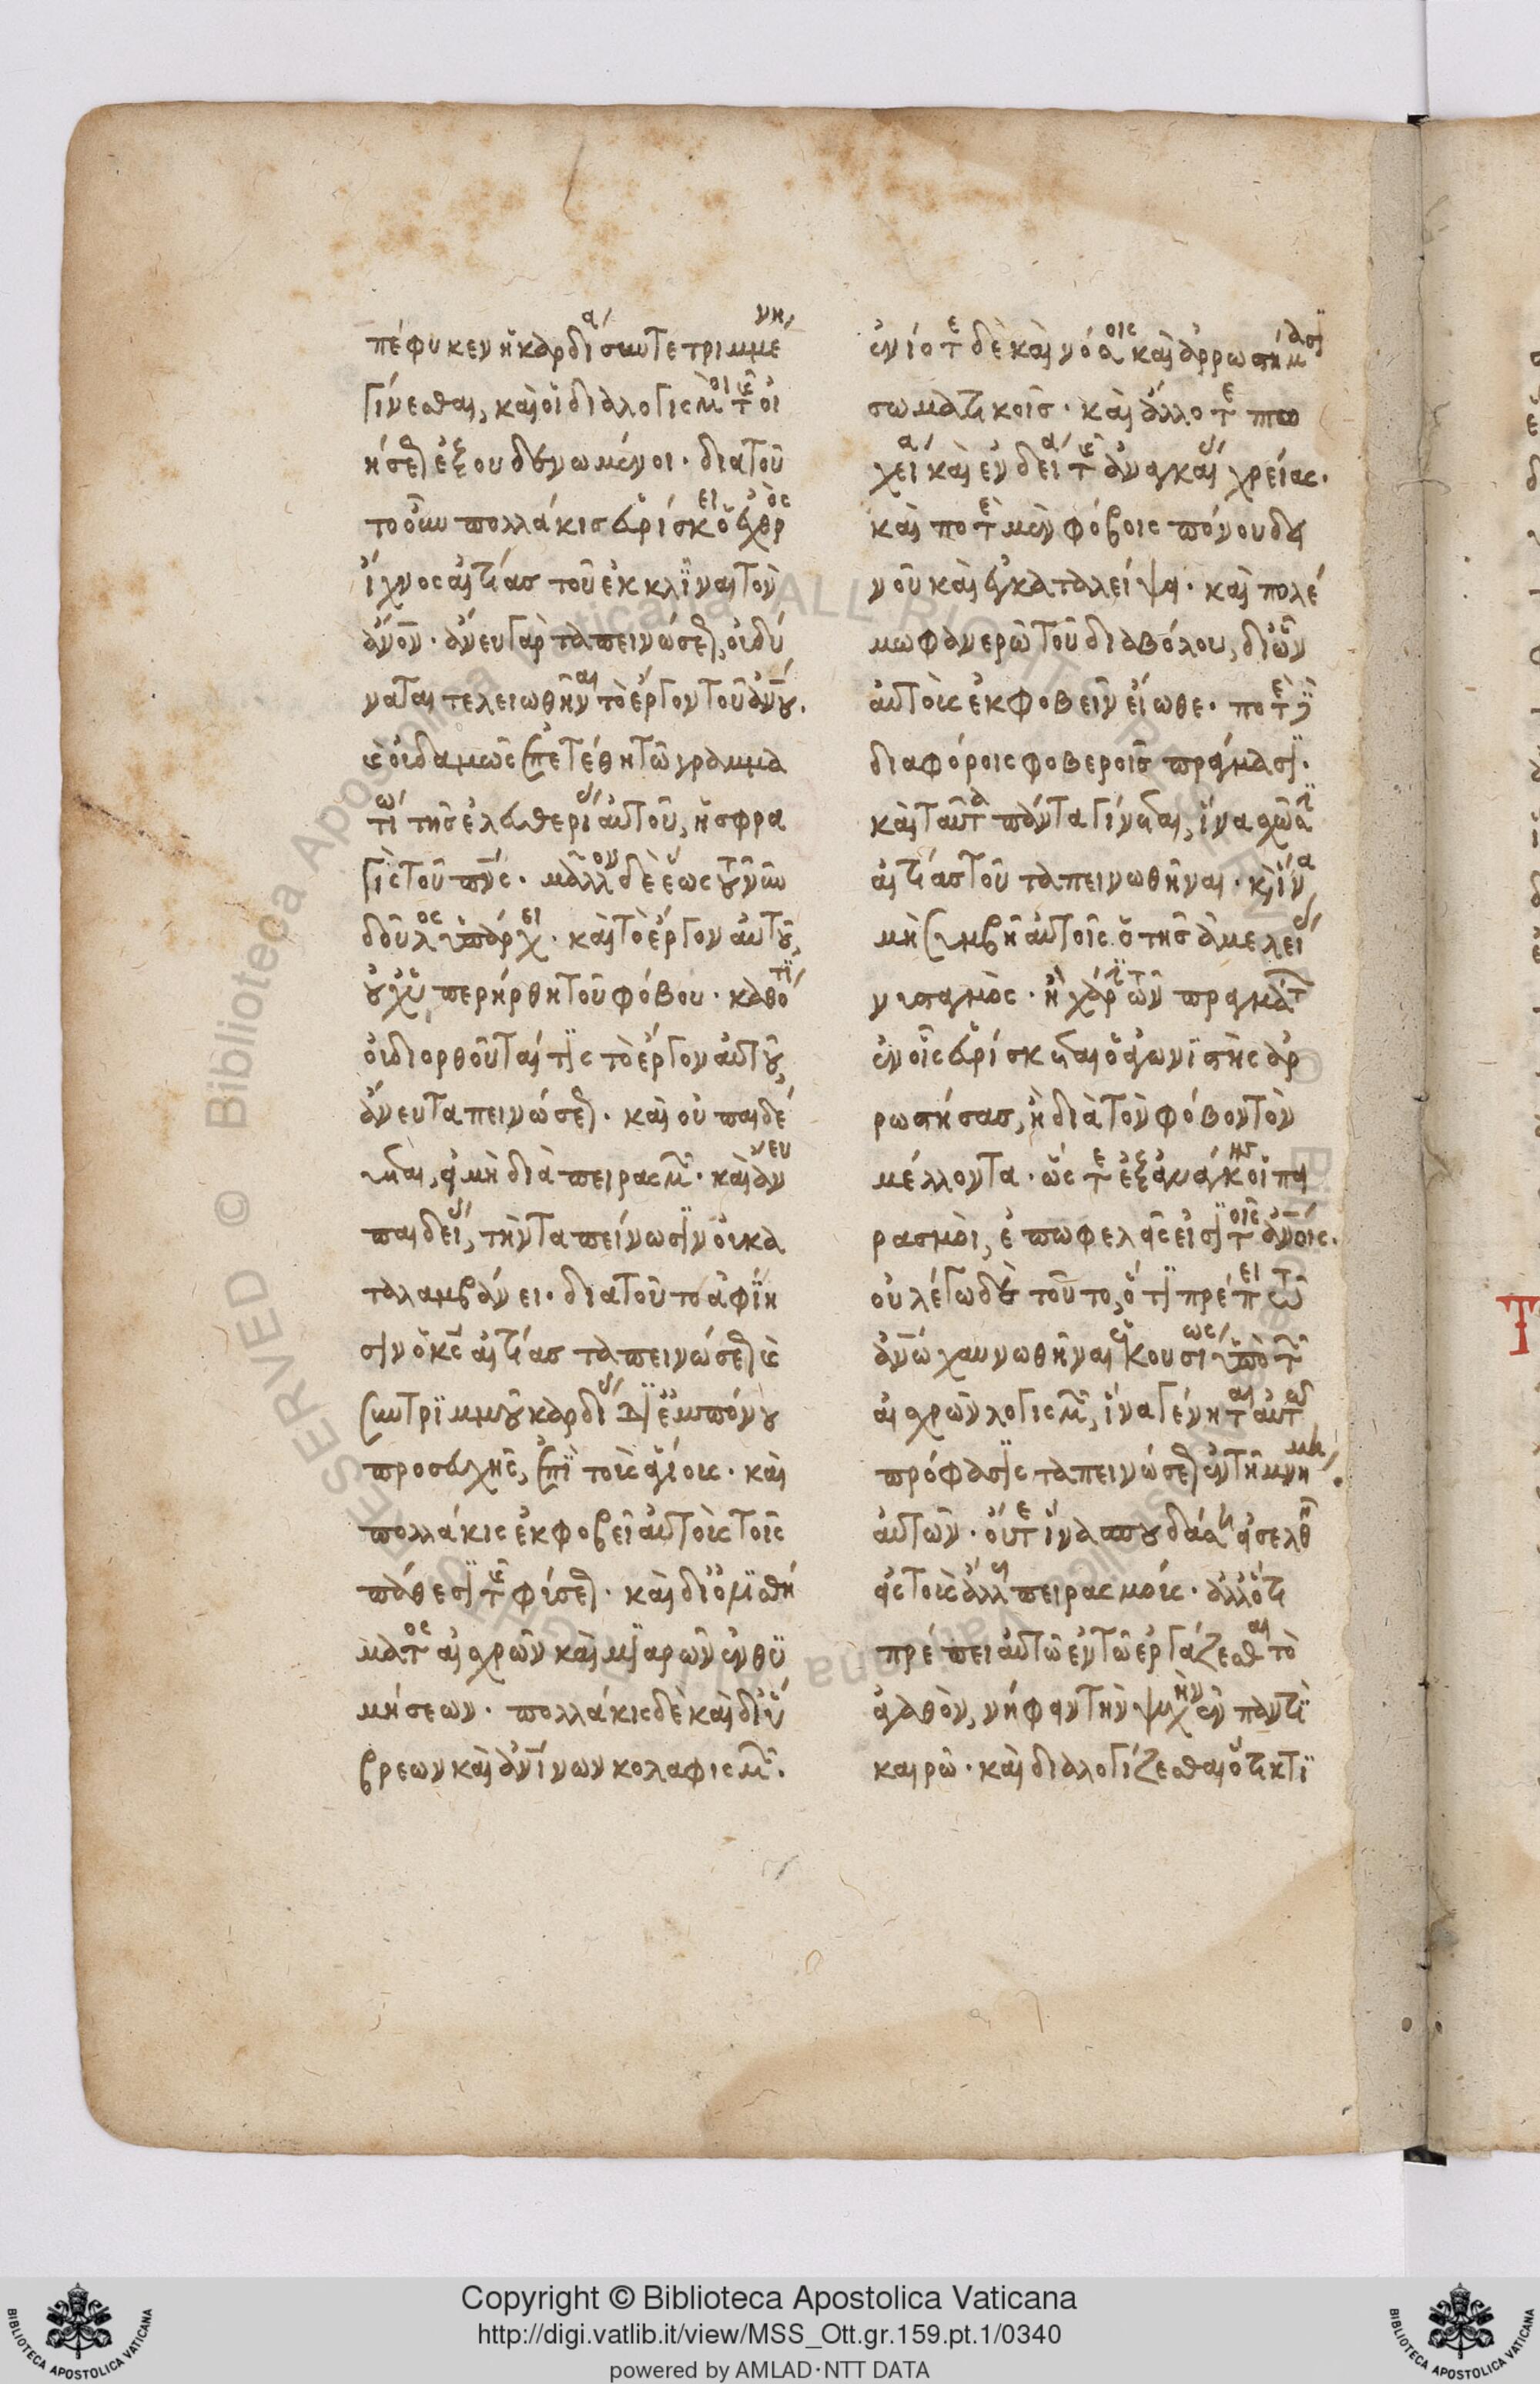 πέφυκεν ἡ καρδία συντετριμμένη
γίνεσθαι, καὶ οἱ διαλογισμοὶ τῆς οἰ
ήσεως ἐξουδενωμένοι · διατοῦ
το οὖν πολλάκις εὑρίσκει ὁ ἐχθρὸς
ἴχνος αἰτίας τοῦ ἐκκλῖναι τὸν
ἄνον · ἄνευ γὰρ ταπεινώσεως, οὐ δύ
ναται τελειωθῆναι τὸ ἔργον τοῦ ἀνου.
καὶ οὐδαμῶς ἐπετέθη τῶ γραμμα
τίω τῆς ἐλευθερίας αὐτοῦ, ἡ σφρα
γὶς τοῦ πνς · μᾶλλον δὲ ἕως τοῦ νῦν
δοῦλος ὑπάρχει · καὶ τὸ ἔργον αὐτοῦ,
οὐχ ὑπερήρθη τοῦ φόβου · καθότι
οὐ διορθοῦται τις τὸ ἔργον αὐτοῦ,
ἄνευ ταπεινώσεως · καὶ οὐ παιδεύ
εται, εἰ μὴ διὰ πειρασμῶν · καὶ ἄνευ
παιδείας, τὴν ταπείνωσιν οὐ κα
ταλαμβάνει · διατοῦτο ἀφίη
σιν ὁ κς αἰτίας ταπεινώσεως καὶ
συντριμμοῦ καρδίας δι' ἐμπόνου
προσευχῆς, ἐπὶ τοῖς ἁγίοις · καὶ
πολλάκις ἐκφοβεῖ αὐτοὺς τοῖς
πάθεσι τῆς φύσεως · καὶ δι' ὀλισθή
ματος αἰσχρῶν καὶ μιαρῶν ἐνθυ
μήσεων · πολλάκις δὲ καὶ δι' ὕ
βρεων καὶ ἀνίνων κολαφισμῶν.
ἐνίοτε δὲ καὶ νόσοις καὶ ἀρρωστήμασι
σωματικοῖς · καὶ ἄλλοτε πτω
χεία καὶ ἐνδεία τῆς ἀναγκαίας χρείας.
καὶ ποτὲ μὲν φόβοις πόνου δει
νοῦ καὶ ἐγκαταλείψει · καὶ πολέ
μω φανερῶ τοῦ διαβόλου, δι' ὧν
αὐτοὺς ἐκφοβεῖν εἴωθε · ποτὲ
διαφόροις φοβεροῖς πράγμασι.
καὶ ταῦτα πάντα γίνεται, ἵνα σχῶσι
αἰτίας τοῦ ταπεινωθῆναι · καὶ ἵνα
μὴ συμβῆ αὐτοῖς ὁ τῆς ἀμελείας
νυσταγμὸς · ἢ χάριν τῶν πραγμάτων
ἐν οἷς εὑρίσκεται ὁ ἀγωνιστὴς ἀρ
ρωστήσας, ἢ διὰ τὸν φόβον τὸν
μέλλοντα · ὥστε ἐξανάγκης οἱ πει
ρασμοὶ, ἐπωφελεῖς εἰσὶ τοῖς ἀνοις.
οὐ λέγω δὲ τοῦτο, ὅτι πρέπει τῶ
ἀνω χαυνωθῆναι ἑκουσίως ὑπὸ τῶν
αἰσχρῶν λογισμῶν, ἵνα γένηται αὐτῶ
πρόφασις ταπεινώσεως ἐν τῆ μνήμη
αὐτῶν · οὔτε ἵνα σπουδάση εἰσελθεῖν
εἰς τοὺς ἄλλους πειρασμοὺς · ἀλλ' ὅτι
πρέπει αὐτῶ ἐν τῶ ἐργάζεσθαι τὸ
ἀγαθὸν, νήφειν τὴν ψυχὴν ἐν παντὶ
καιρῶ · καὶ διαλογίζεσθαι ὅτι κτι
Copyright © Biblioteca Apostolica Vaticana
http://digi.vatlib.it/view/MSS_Ott.gr.159.pt.1/0340
powered by AMLAD·NTT DATA